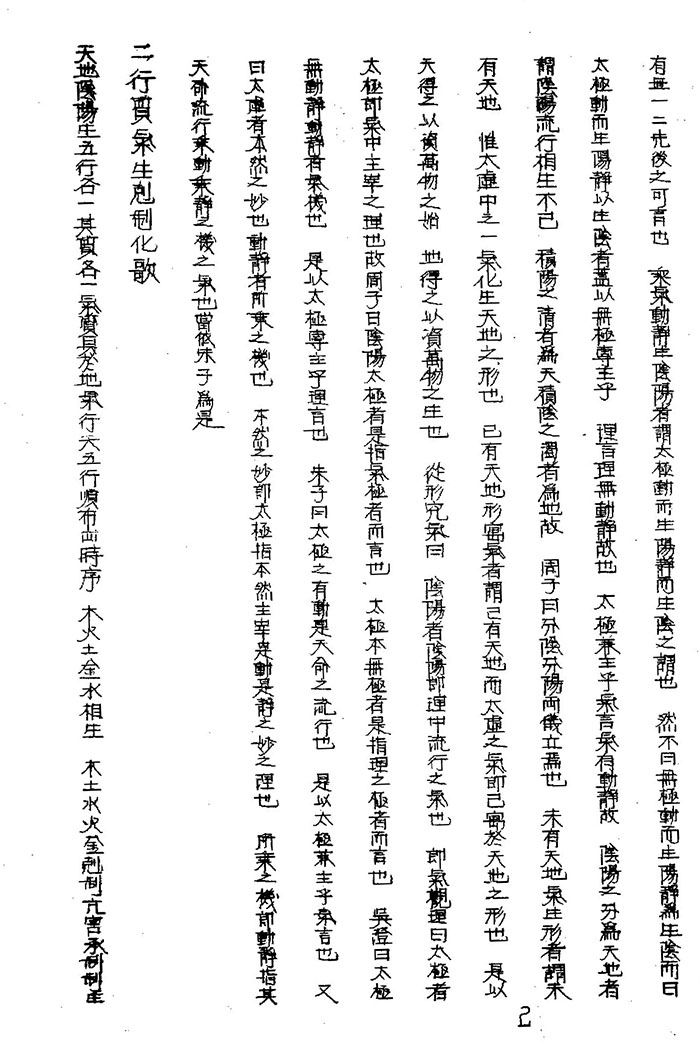 有無一二先後之可言也 乘氣動靜生陰陽者謂太極動而生陽靜而生陰之謂也 然不曰無極動而生陽靜為生陰而曰
太極動而生陽靜以生陰者蓋以無極專主乎 理言理無動靜故也 太極兼主乎氣言氣有動靜故 陰陽之分為天地者
謂陰陽流行相生不已 積陽之清者為天積陰之濁者為地故 周子曰分陰分陽兩儀立焉也 未有天地氣生形者謂未
有天地 惟太虛中之一氣化生天地之形也 已有天地形寓氣者謂已有天地而太虛之氣即已寓於天地之形也 是以
天得之以資萬物之始 地得之以資萬物之生也 從形究氣曰 陰陽者陰陽即理中流行之氣也 即氣觀理曰太極者
太極即氣中主宰之理也故周子曰陰陽太極者是指氣極者而言也 太極本無極者是指理之極者而言也 吳澄曰太極
無動靜動靜者氣機也 是以太極專主乎理言也 朱子曰太極之有動是天命之流行也 是以太極兼主乎氣言也 又
曰太虛者本然之妙也動靜者所乘之機也 本然之妙即太極指本然主宰是動是靜之妙之理也 所乘之機即動靜指其
天命流行乘動乘靜之機之氣也當依朱子為是
二行質氣生剋制化歌
天地陰陽生五行各一其質各一氣質具於地氣行天五行順布四時序 木火土金水相生 木土水火金剋制亢害承制制生
2